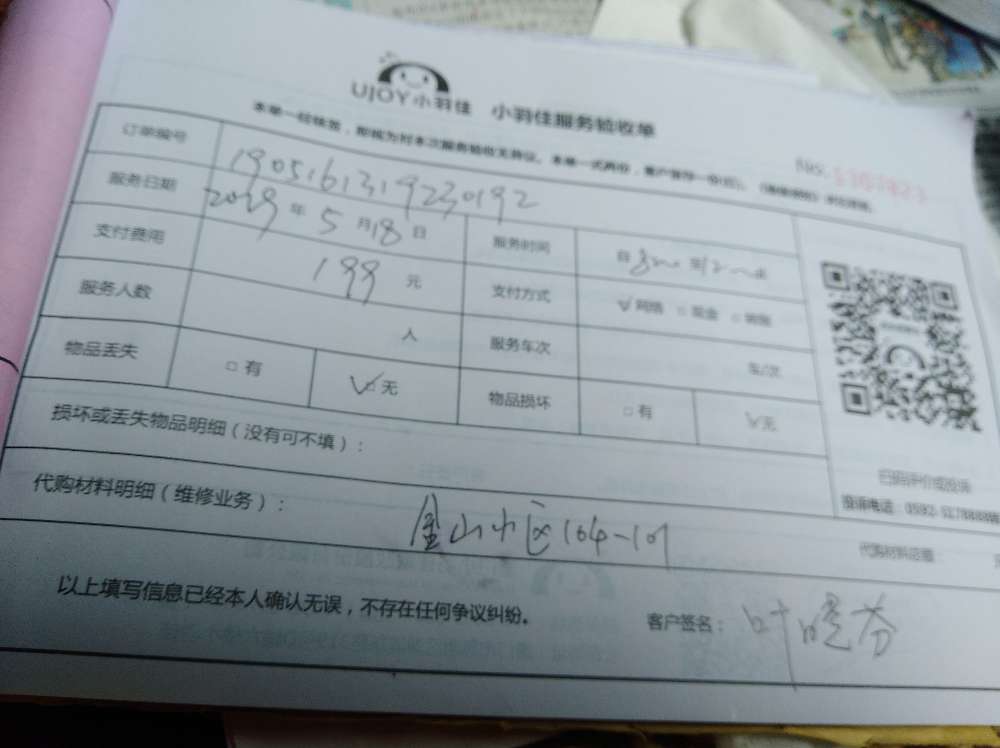 UJOY小羽佳 小羽佳服务验收单
本单一经核签，即视为对本次服务验收无异议。本单一式两份，客户留存一份
No:
订单编号 1905161319230192
服务日期 2019年5月18日 服务时间 自 至 点
支付费用 199元 支付方式 √网络 □现金 □
服务人数 人 服务车次 车/次
物品丢失 □有 √无 物品损坏 □有 √无
扫码评价或投诉
投诉电话：0592-
损坏或丢失物品明细（没有可不填）：
代购材料明细（维修业务）： 金山小区164-101
代购材料总额：
以上填写信息已经本人确认无误，不存在任何争议纠纷。 客户签名：叶晓芬